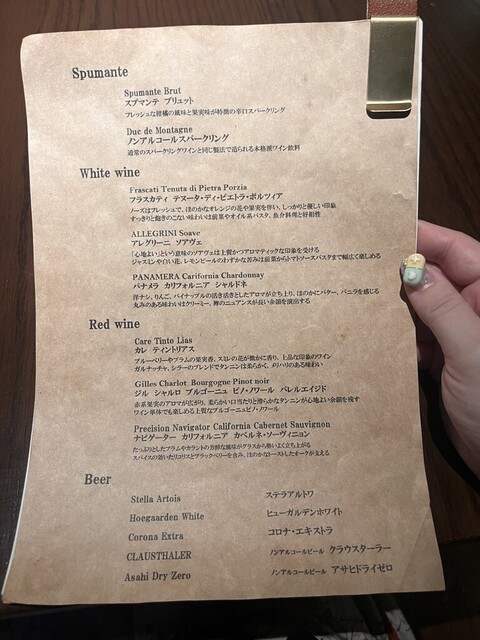 Spumante
Spumante Brut
スプマンテ ブリュット
フレッシュな柑橘の風味と果実味が特徴の辛口スパークリング
Duc de Montagne
ノンアルコールスパークリング
通常のスパークリングワインと同じ製法で造られる本格派ワイン飲料
White wine
Frascati Tenuta di Pietra Porzia
フラスカティ テヌータ・ディ・ピエトラ・ポルツィア
ノーズはフレッシュで、ほのかなオレンジの花や果実を伴い、しっかりと優しい印象
すっきりと飽きのこない味わいは前菜やオイル系パスタ、魚介料理と好相性
ALLEGRINI Soave
アレグリーニ ソアヴェ
「心地よい」という意味のソアヴェは上質かつアロマティックな印象を受ける
ジャスミンや白い花、レモンピールのわずかな苦みは前菜からトマトソースパスタまで幅広く楽しめる
PANAMERA Carifornia Chardonnay
パナメラ カリフォルニア シャルドネ
洋ナシ、りんご、パイナップルの活き活きとしたアロマが立ち上り、ほのかにバター、バニラを感じる
丸みのある味わいはクリーミー、樽のニュアンスが長い余韻を演出する
Red wine
Care Tinto Lias
カレ ティントリアス
ブルーベリーやプラムの果実香、スミレの花が微かに香り、上品な印象のワイン
ガルナッチャ、シラーのブレンドでタンニンは柔らかく、メリハリのある味わい
Gilles Charlot Bourgogne Pinot noir
ジル シャルロ ブルゴーニュ ピノ・ノワール バレルエイジド
赤系果実のアロマが広がり、柔らかい口当たりと滑らかなタンニンが心地よい余韻を残す
ワイン単体でも楽しめる上質なブルゴーニュピノ・ノワール
Precision Navigator California Cabernet Sauvignon
ナビゲーター カリフォルニア カベルネ・ソーヴィニョン
たっぷりとしたプラムやカラントの芳醇な風味がグラスから勢いよく立ち上がる
スパイスの効いたリコリスとブラックベリーを含み、ほのかなトーストしたオークが支える
Beer
Stella Artois ステラアルトワ
Hoegaarden White ヒューガルデンホワイト
Corona Extra コロナ・エキストラ
CLAUSTHALER ノンアルコールビール クラウスターラー
Asahi Dry Zero ノンアルコールビール アサヒドライゼロ